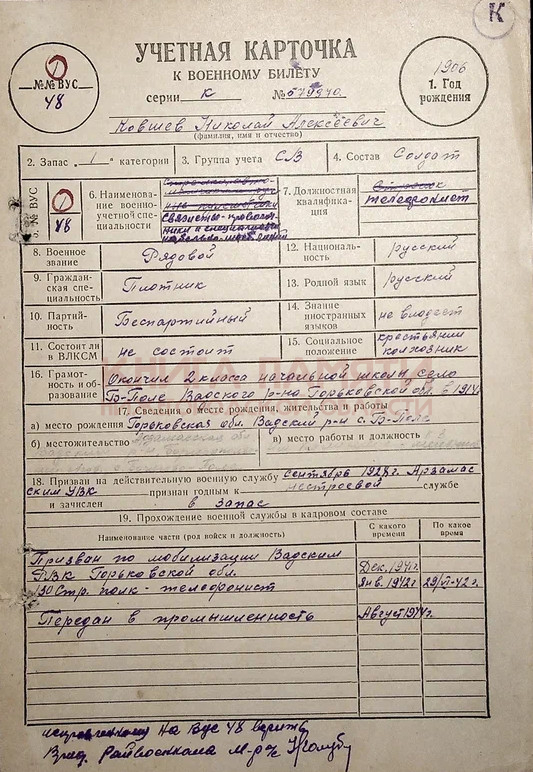 К
№№ ВУС
0
48
УЧЕТНАЯ КАРТОЧКА
К ВОЕННОМУ БИЛЕТУ
серии К №
1906
1. Год рождения
Ковшев Николай Алексеевич
(фамилия, имя и отчество)
2. Запас 1 категории
3. Группа учета СВ
4. Состав Солдат
5. № ВУС
0
48
6. Наименование военно-учетной специальности
7. Должностная квалификация телефонист
8. Военное звание Рядовой
12. Национальность русский
9. Гражданская специальность Плотник
13. Родной язык русский
10. Партийность Беспартийный
14. Знание иностранных языков не владеет
11. Состоит ли в ВЛКСМ не состоит
15. Социальное положение крестьянин колхозник
16. Грамотность и образование Окончил 2 класса начальной школы село
Б-Поле Вадского р-на Горьковской обл. в
17. Сведения о месте рождения, жительства и работы
а) место рождения Горьковская обл. Вадский р-н с. Б-Поле
б) местожительство
в) место работы и должность
18. Призван на действительную военную службу сентябрь 1928г. Арзамас
ским УВК признан годным к нестроевой службе
и зачислен в запас
19. Прохождение военной службы в кадровом составе
Наименование части (род войск и должность)
С какого времени
По какое время
Призван по мобилизации Вадским
РВК Горьковской обл. Дек. 1941г.
Стр. полк - телефонист Янв. 1942г
Передан в промышленность Август
на Вус 48 верить
Райвоенкома м-р